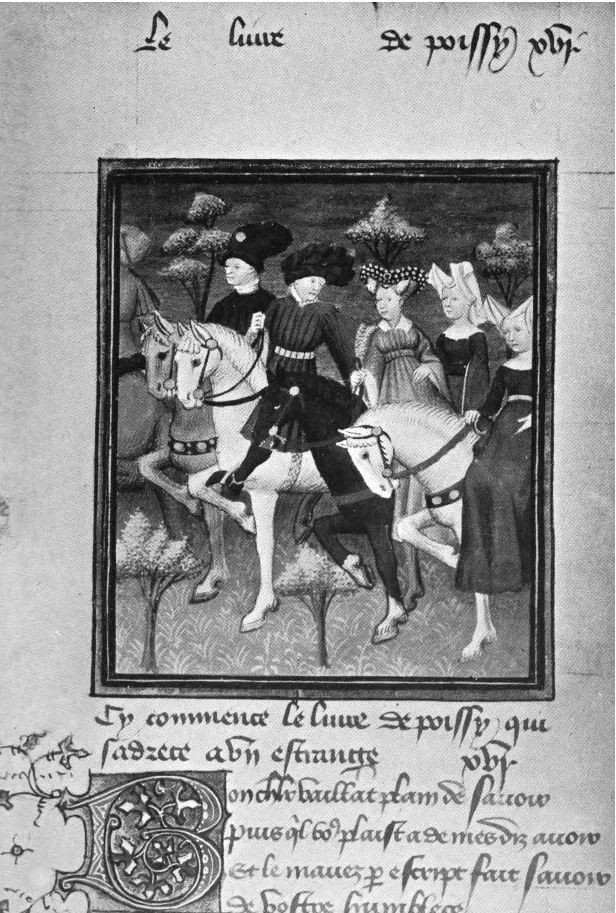 Le liure de poissy xvi
Cy commence le liure de poissy qui
sadrece a vn estrange xvi
Bon chlr vaillāt plain de sauoir
puis ql voꝰ plaist a de mes diz auoir
Et le mauez ꝑ escript fait sauoir
de vostre humblece